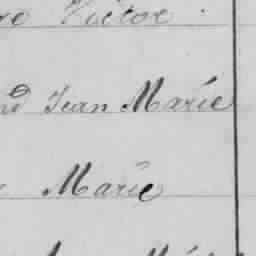 Victor
Jean Marie
Marie